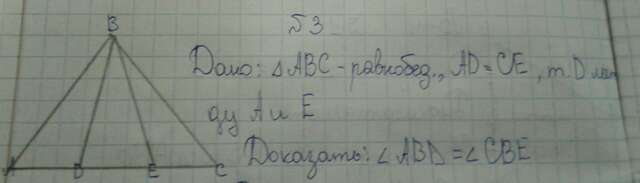 №3
Дано: △ABC - равнобед., AD = CE, т. D меж
ду A и E
Доказать: ∠ABD = ∠CBE
B
A D E C